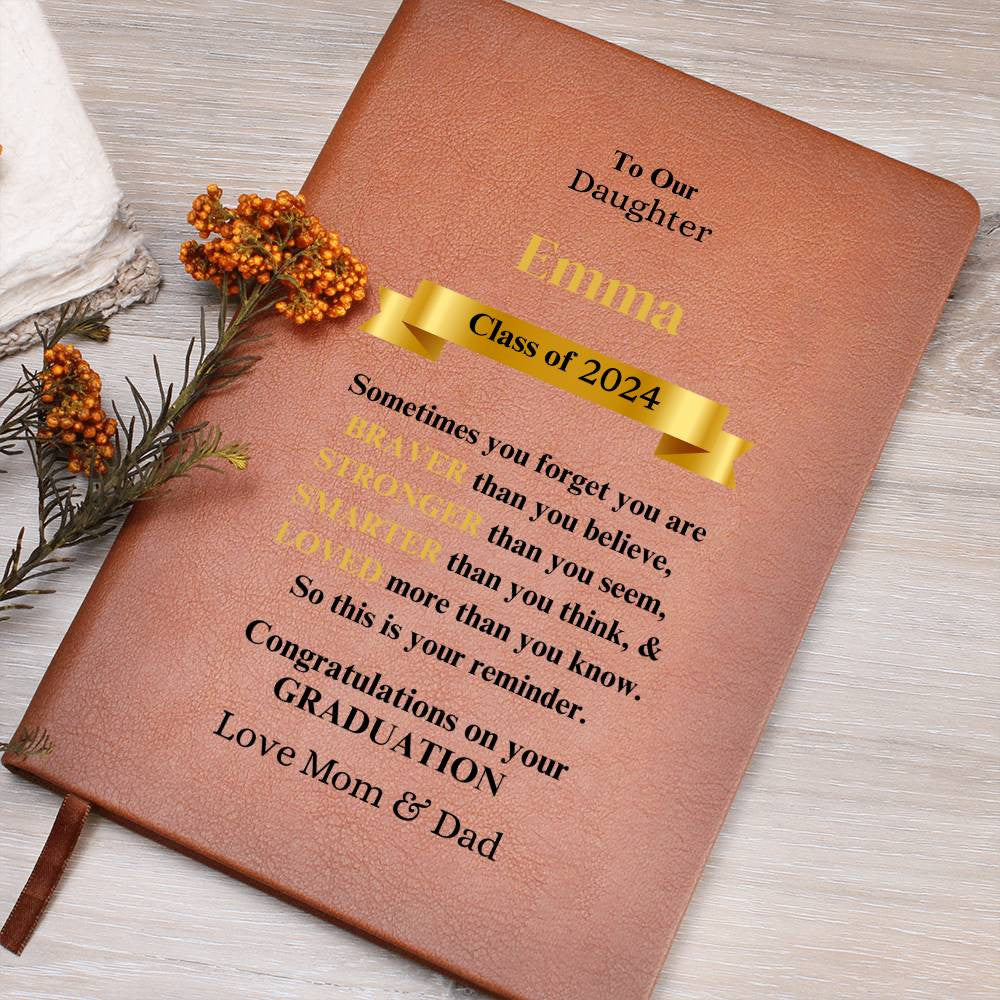 To Our
Daughter
Emma
Class of 2024
Sometimes you forget you are
BRAVER than you believe,
STRONGER than you seem,
SMARTER than you think, &
LOVED more than you know.
So this is your reminder.
Congratulations on your
GRADUATION
Love Mom & Dad